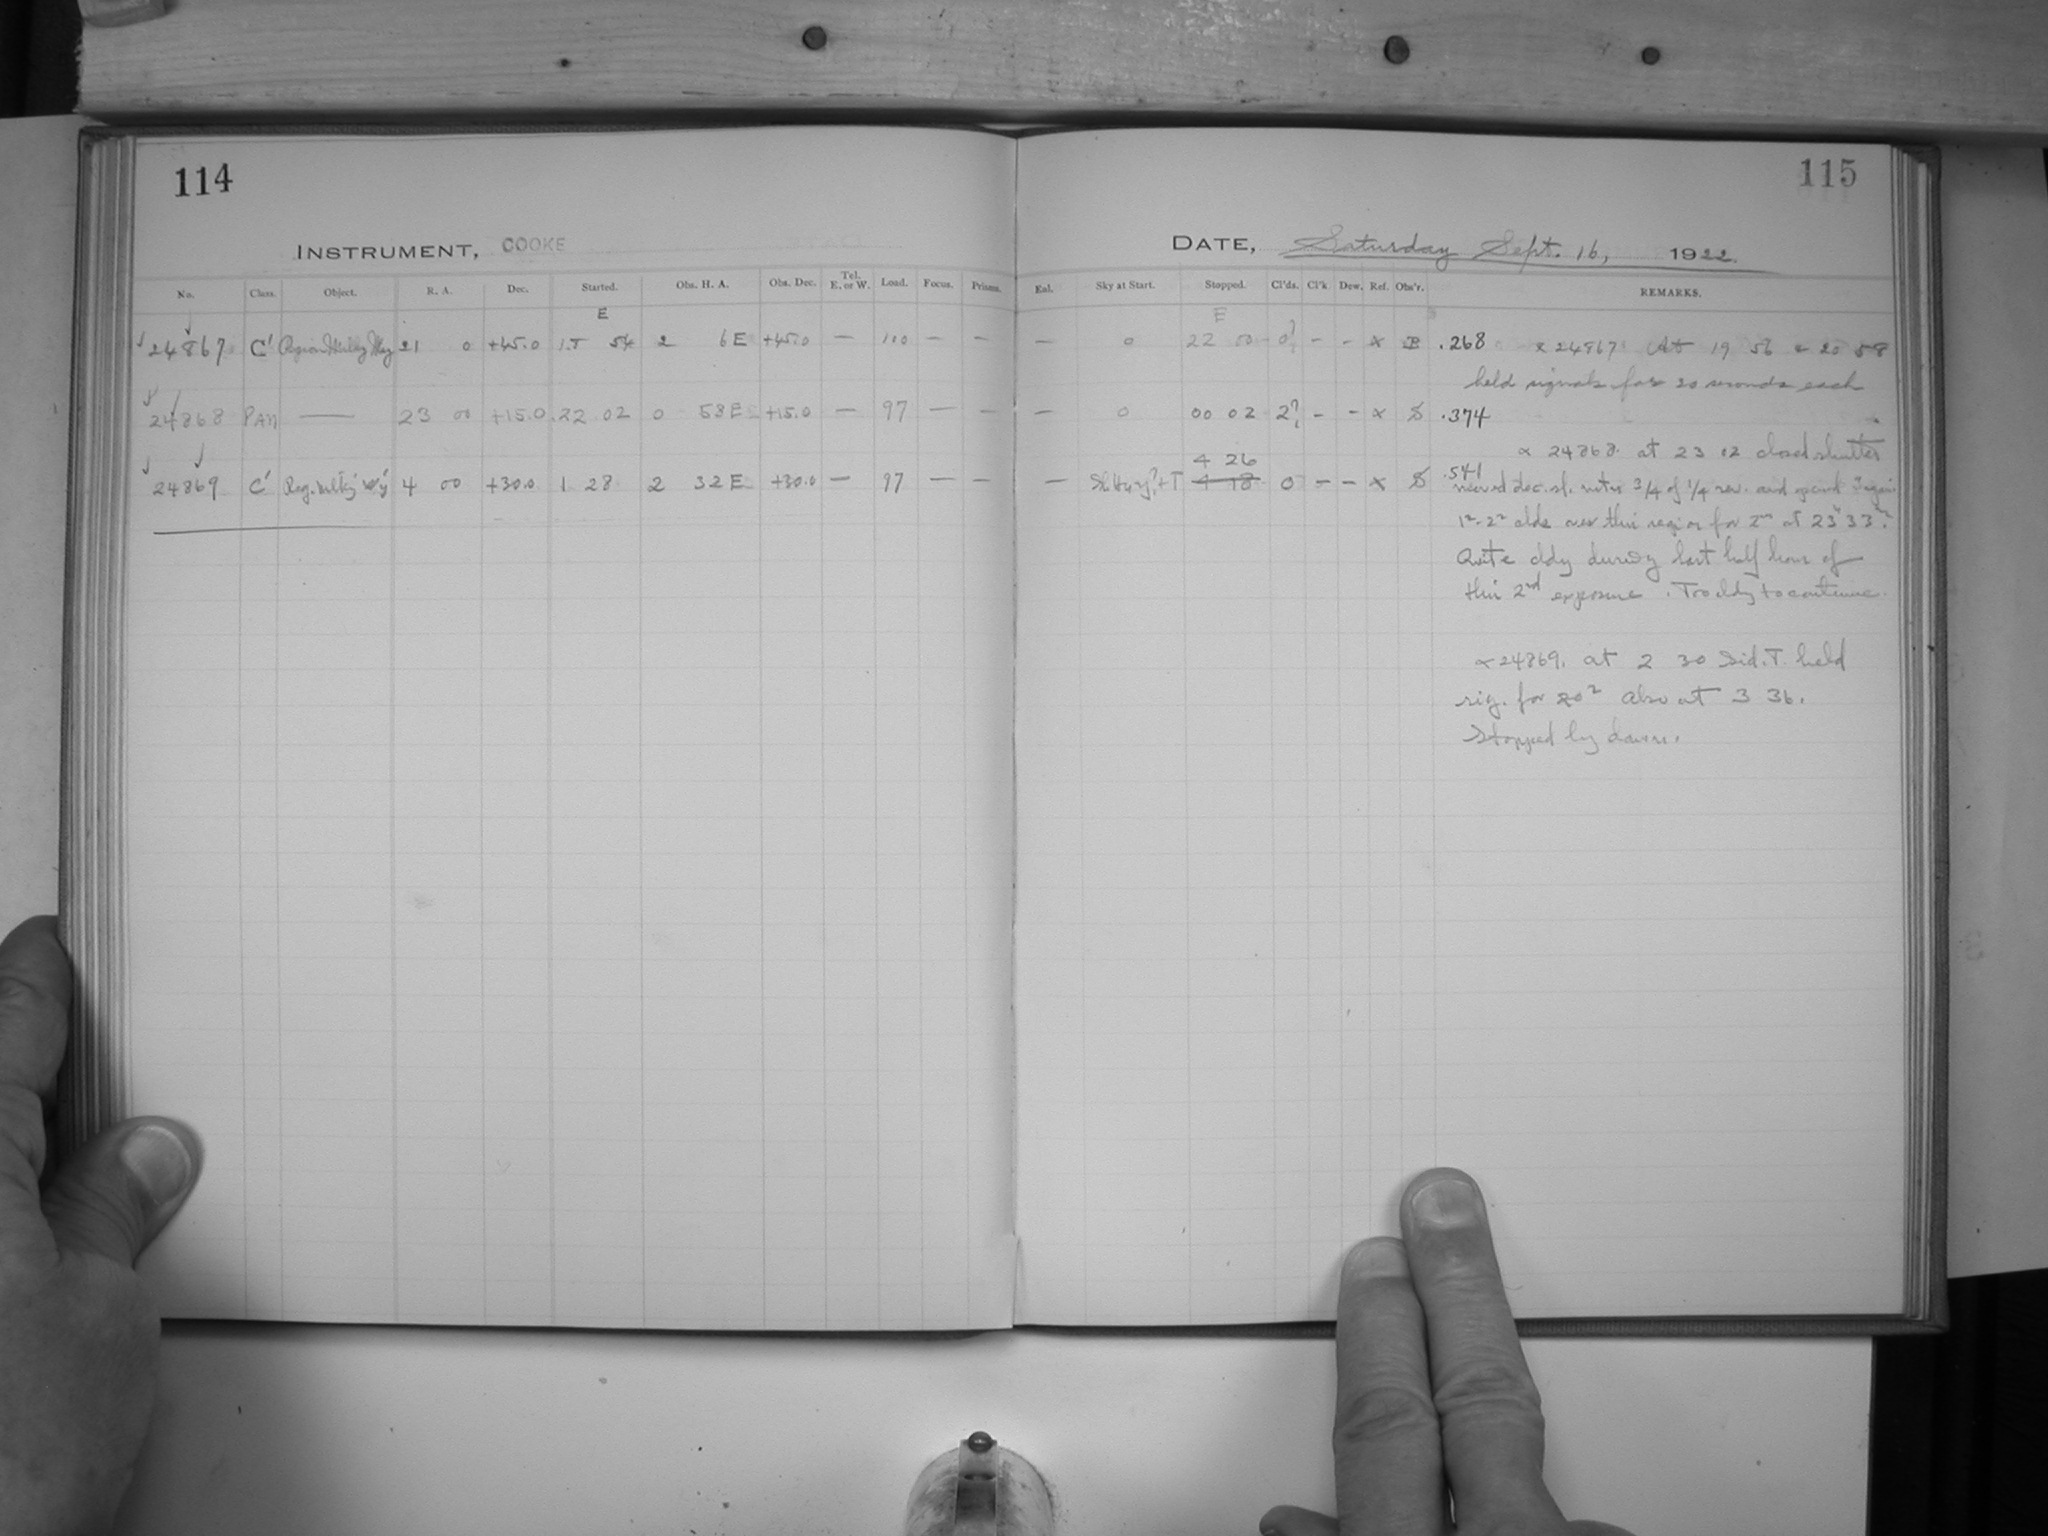 114
115
INSTRUMENT, COOKE
DATE, Saturday Sept. 16, 1922.
No. Class. Object. R. A. Dec. Started. Obs. H. A. Obs. Dec. Tel. E. or W. Load. Focus. Prisms.
Eal. Sky at Start. Stopped. Cl'ds. Cl'k Dew. Ref. Obs'r. REMARKS.
E
E
24867 C' Region Milky Way 21 0 +45.0 18 54 2 6 E +45.0 — 100 — —
— 0 22 00 0? - - x B .268 x 24867 At 19 56 & 20 58
held signals for 20 seconds each
24868 PAN — 23 00 +15.0 22 02 0 58 E +15.0 — 97 — —
— 0 00 02 2? - - x S .374
x 24868. at 23 12 closed shutter
4 26
24869 C' Reg. Milky Wy 4 00 +30.0 1 28 2 32 E +30.0 — 97 — —
— Sl. Hazy?+T 4 18 0 - - x S .541
moved dec. sl. motn 3/4 of 1/4 rev. and opened again
clds over this region for 2m at 23h 33m.
Quite cldy during last half hour of
this 2nd exposure. Too cldy to continue.
x 24869. at 2 30 Sid. T. held
sig. for 20s also at 3 36.
Stopped by dawn.